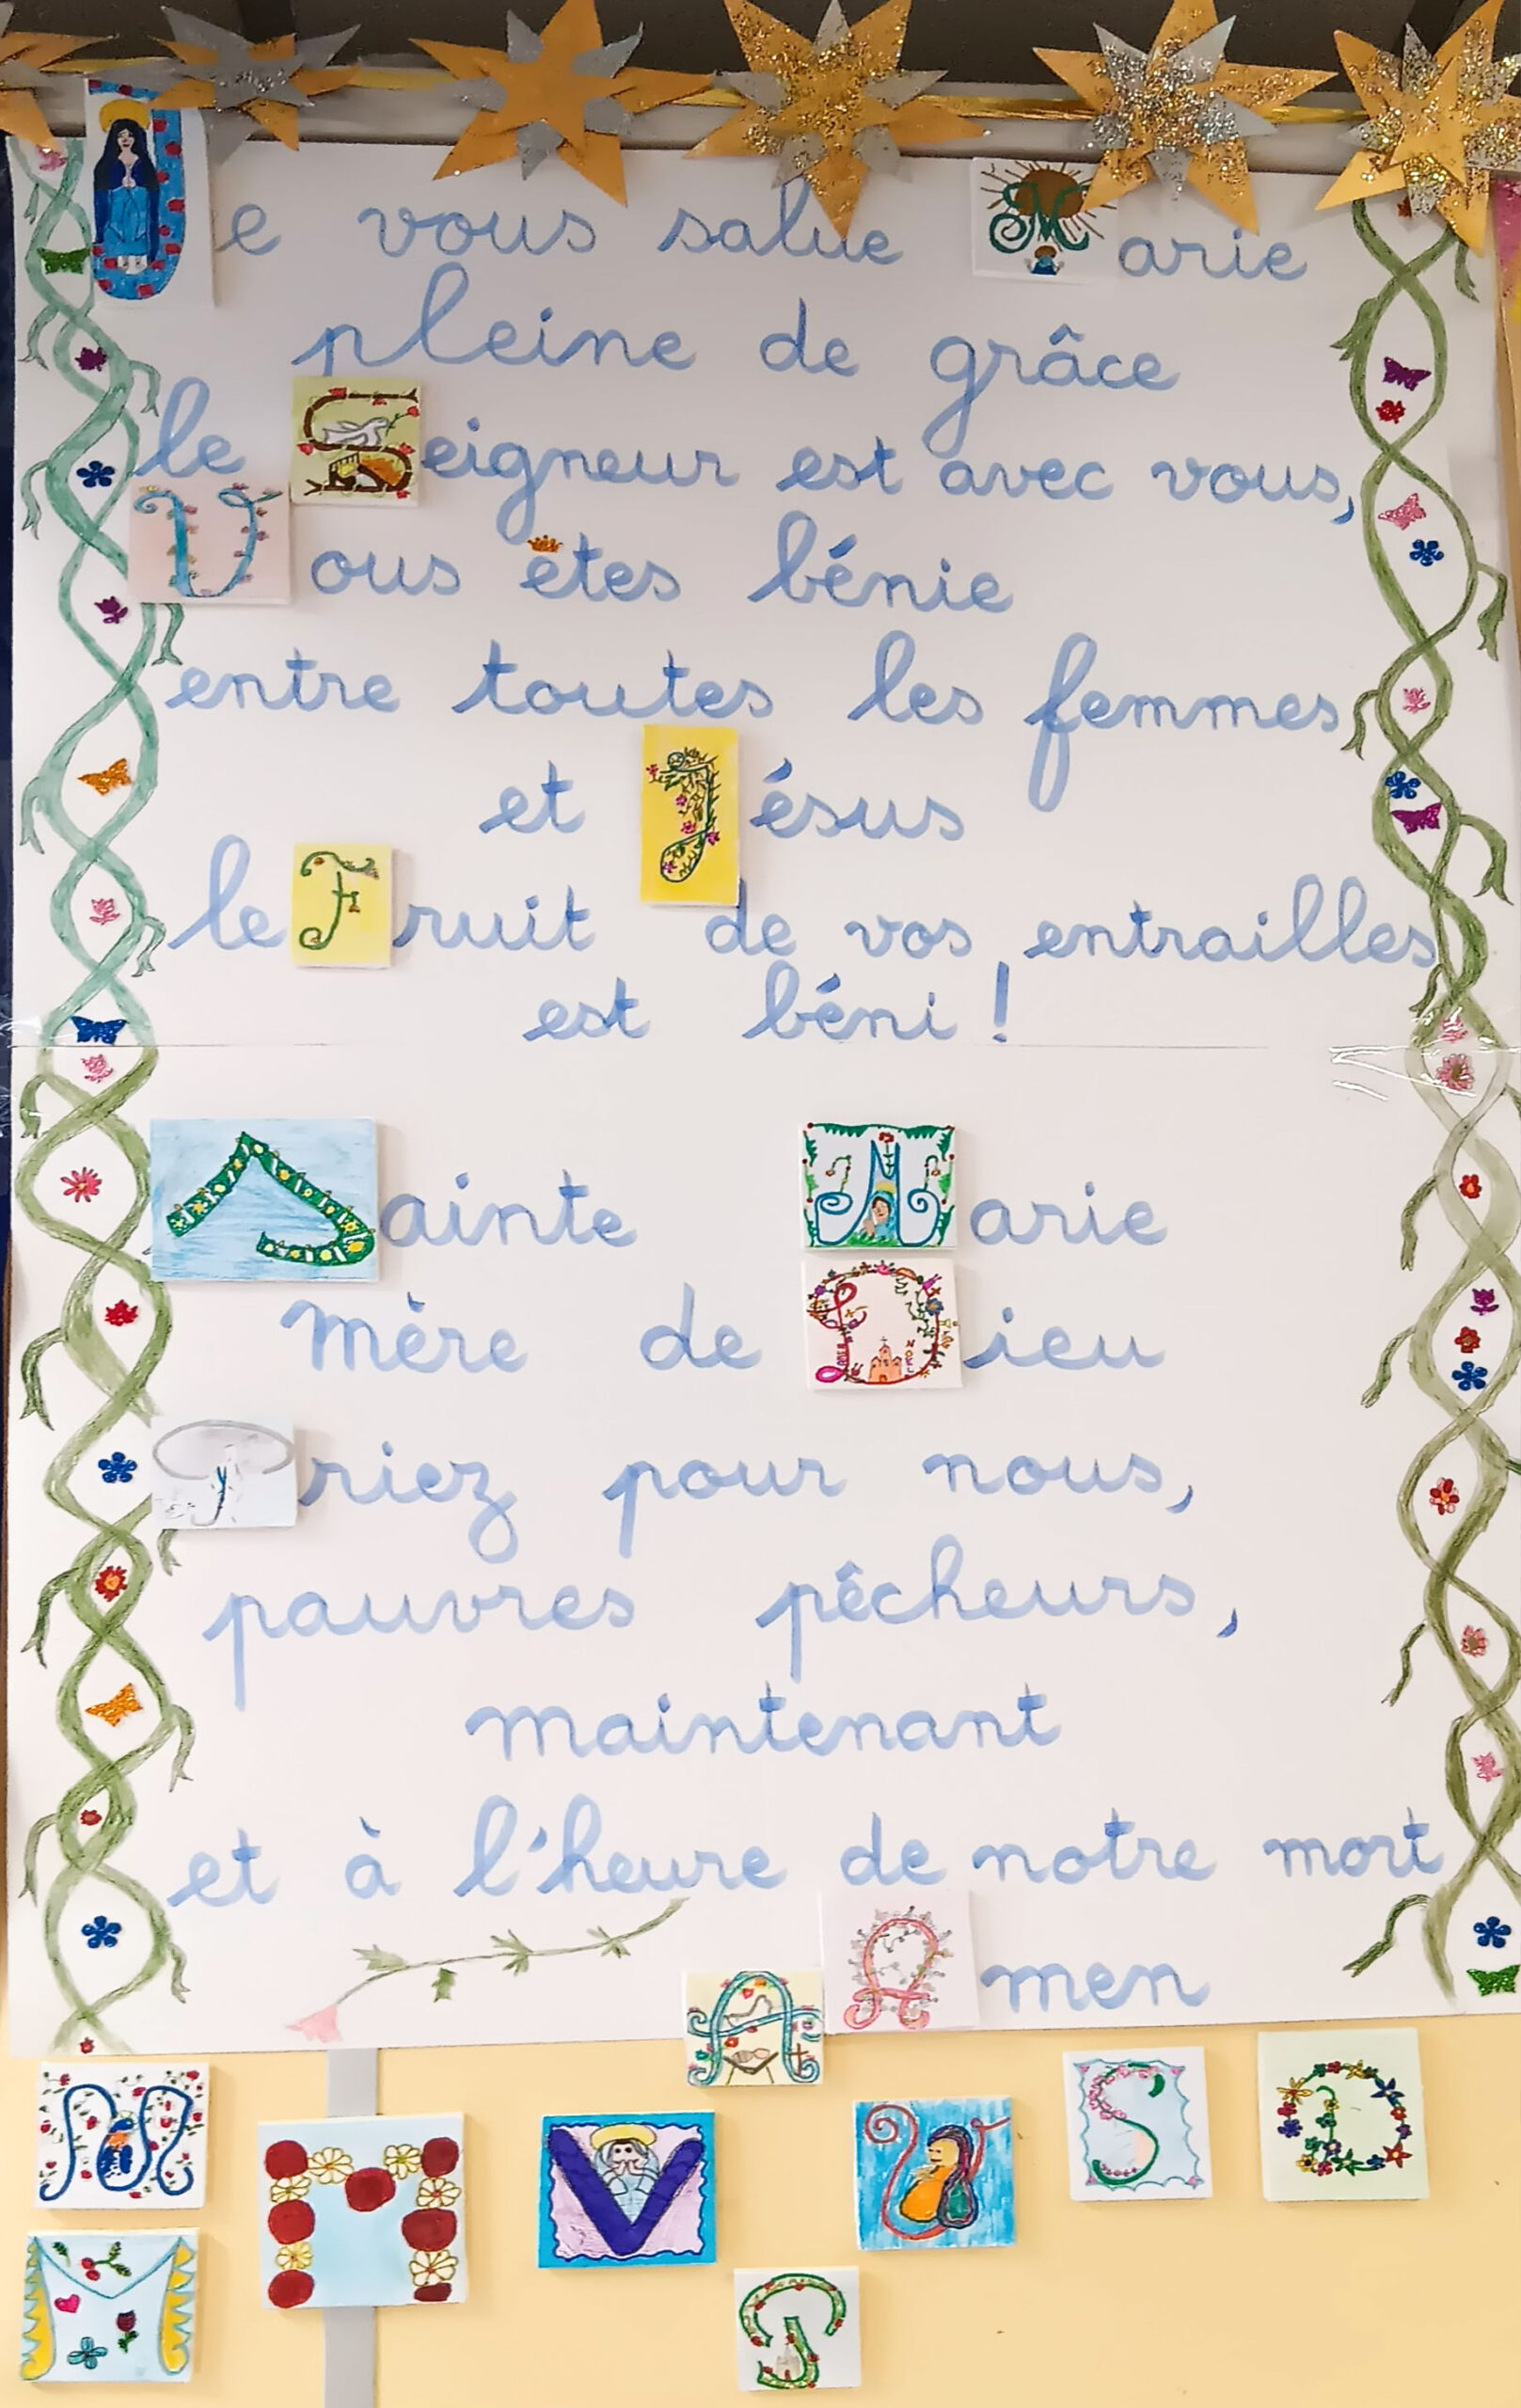 Je vous salue Marie
pleine de grâce
le Seigneur est avec vous,
Vous êtes bénie
entre toutes les femmes
et Jésus
le Fruit de vos entrailles
est béni !
Sainte Marie
mère de Dieu
Priez pour nous,
pauvres pêcheurs,
maintenant
et à l'heure de notre mort
Amen
A
M V S D
M
P